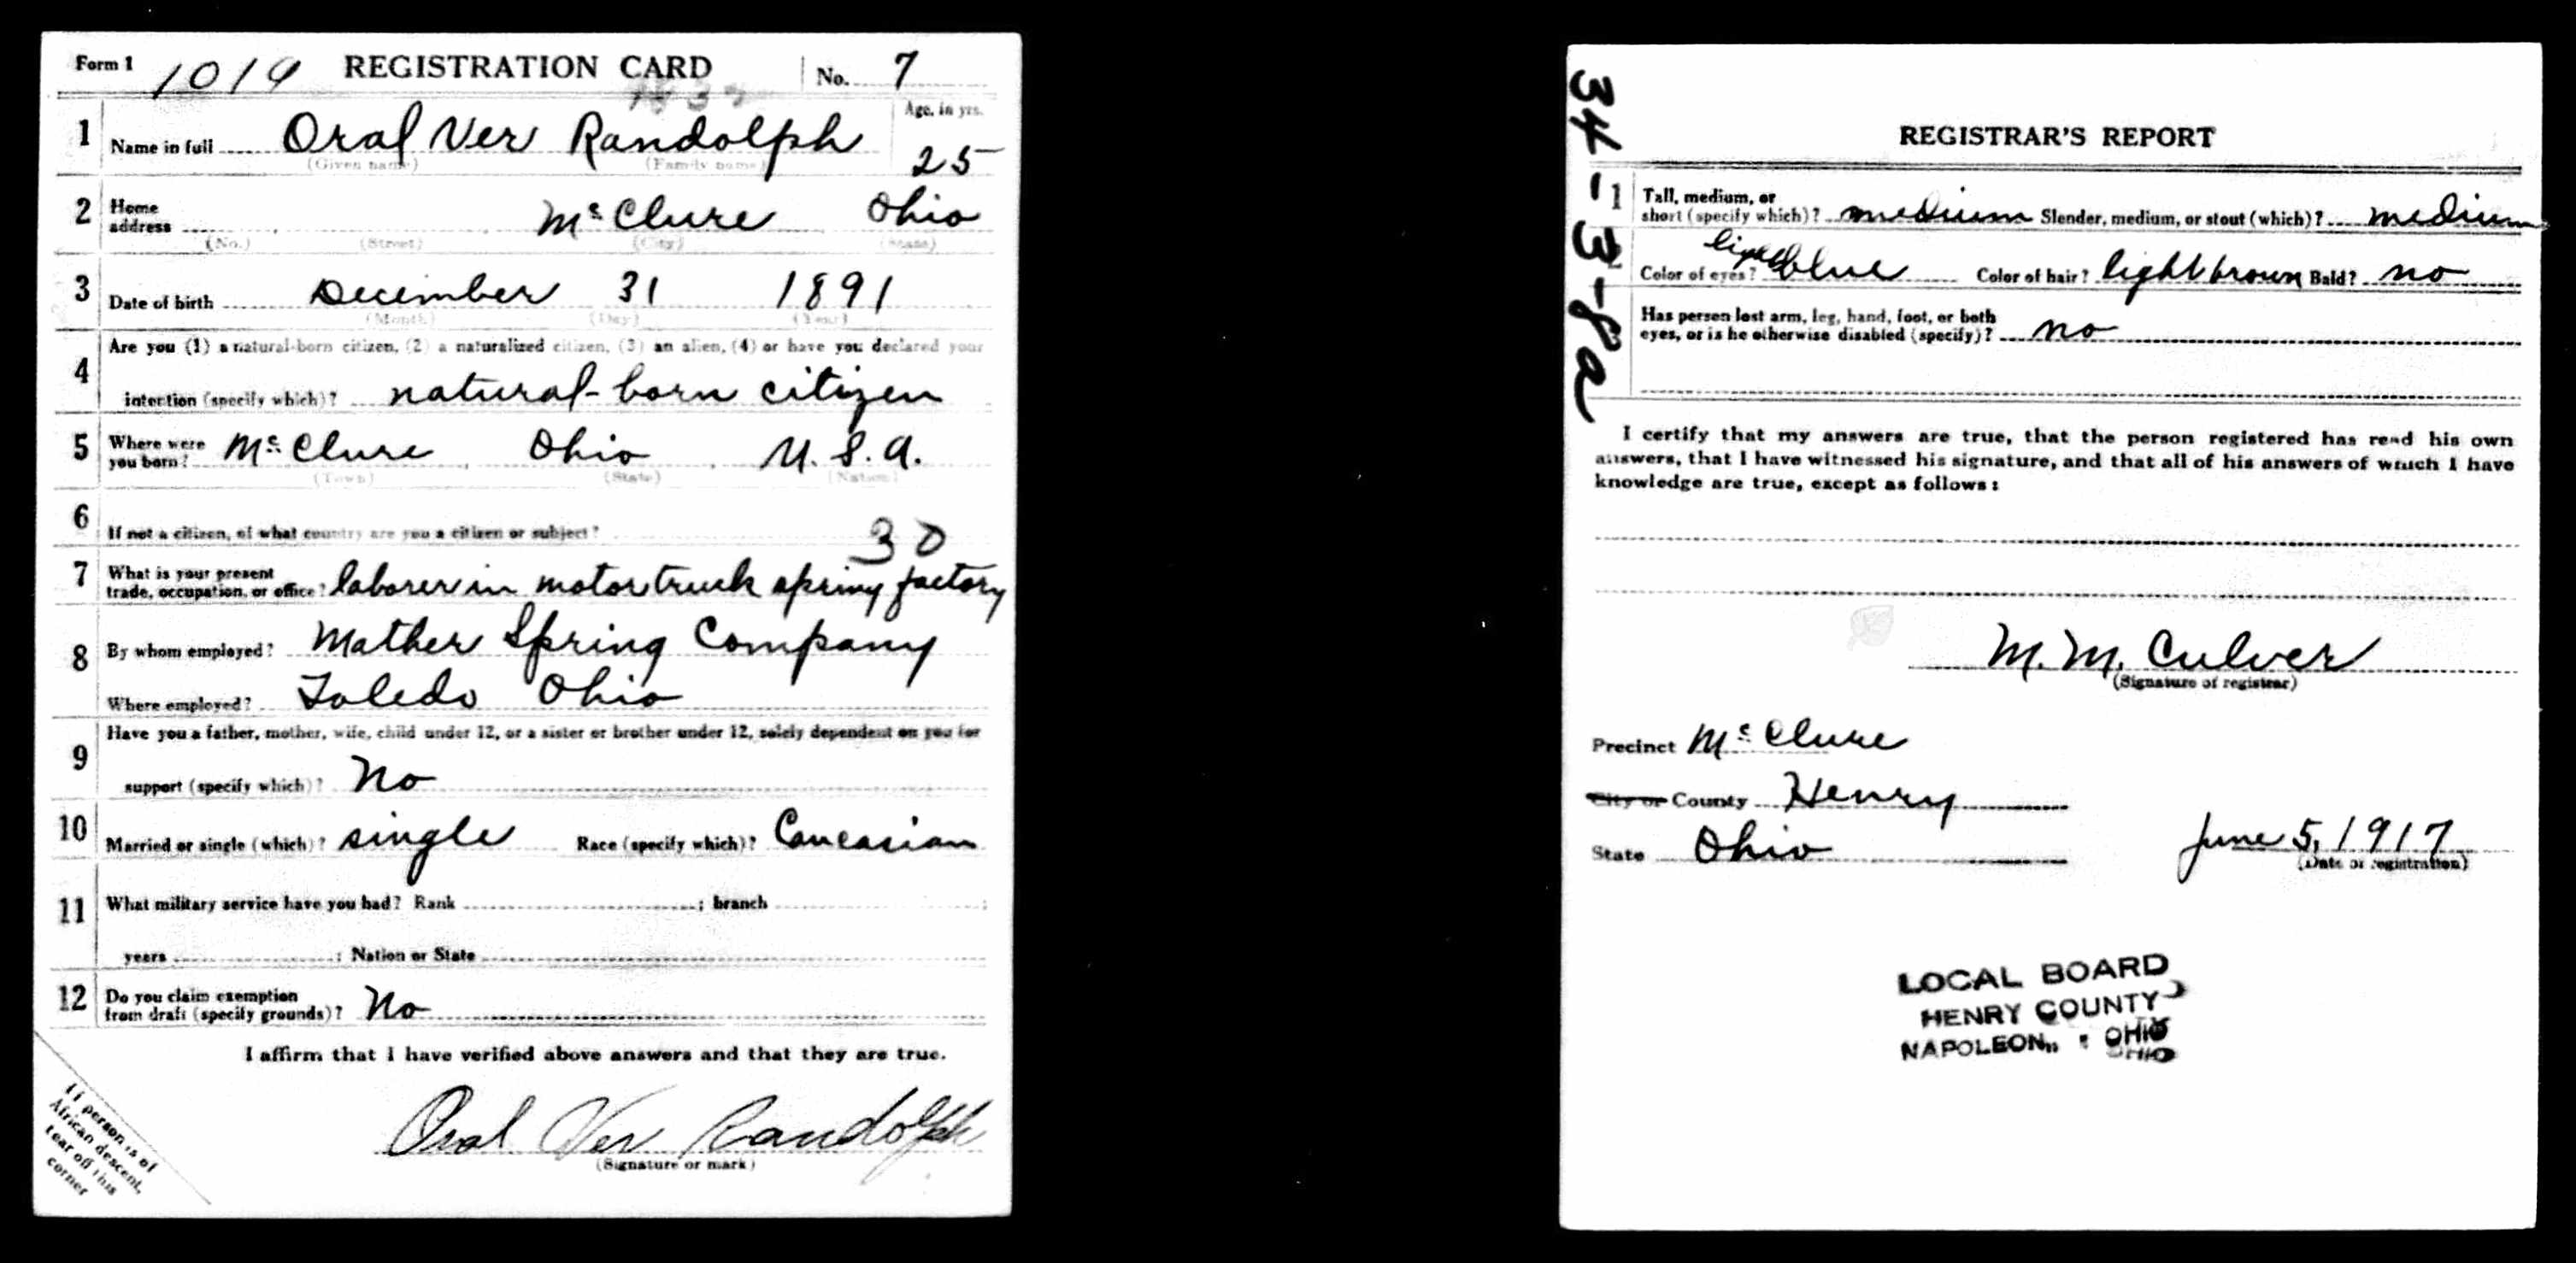 Form 1 1019 REGISTRATION CARD No. 7
Age, in yrs.
1 Name in full Oral Ver Randolph 25
(Given name) (Family name)
2 Home address McClure Ohio
(No.) (Street) (City) (State)
3 Date of birth December 31 1891
(Month) (Day) (Year)
4 Are you (1) a natural-born citizen, (2) a naturalized citizen, (3) an alien, (4) or have you declared your
intention (specify which)? natural-born citizen
5 Where were you born? McClure Ohio U.S.A.
(Town) (State) (Nation)
6 If not a citizen, of what country are you a citizen or subject?
30
7 What is your present trade, occupation, or office? laborer in motor truck spring factory
8 By whom employed? Mather Spring Company
Where employed? Toledo Ohio
9 Have you a father, mother, wife, child under 12, or a sister or brother under 12, solely dependent on you for
support (specify which)? No
10 Married or single (which)? single Race (specify which)? Caucasian
11 What military service have you had? Rank ; branch ;
years ; Nation or State
12 Do you claim exemption from draft (specify grounds)? No
I affirm that I have verified above answers and that they are true.
Oral Ver Randolph
(Signature or mark)
If person is of
African descent,
tear off this
corner
34-3-8a
REGISTRAR'S REPORT
1 Tall, medium, or short (specify which)? medium Slender, medium, or stout (which)? medium
2 Color of eyes? light blue Color of hair? light brown Bald? no
Has person lost arm, leg, hand, foot, or both
eyes, or is he otherwise disabled (specify)? no
I certify that my answers are true, that the person registered has read his own
answers, that I have witnessed his signature, and that all of his answers of which I have
knowledge are true, except as follows:
M. M. Culver
(Signature of registrar)
Precinct McClure
City or County Henry
State Ohio
June 5, 1917
(Date of registration)
LOCAL BOARD
HENRY COUNTY
NAPOLEON, OHIO